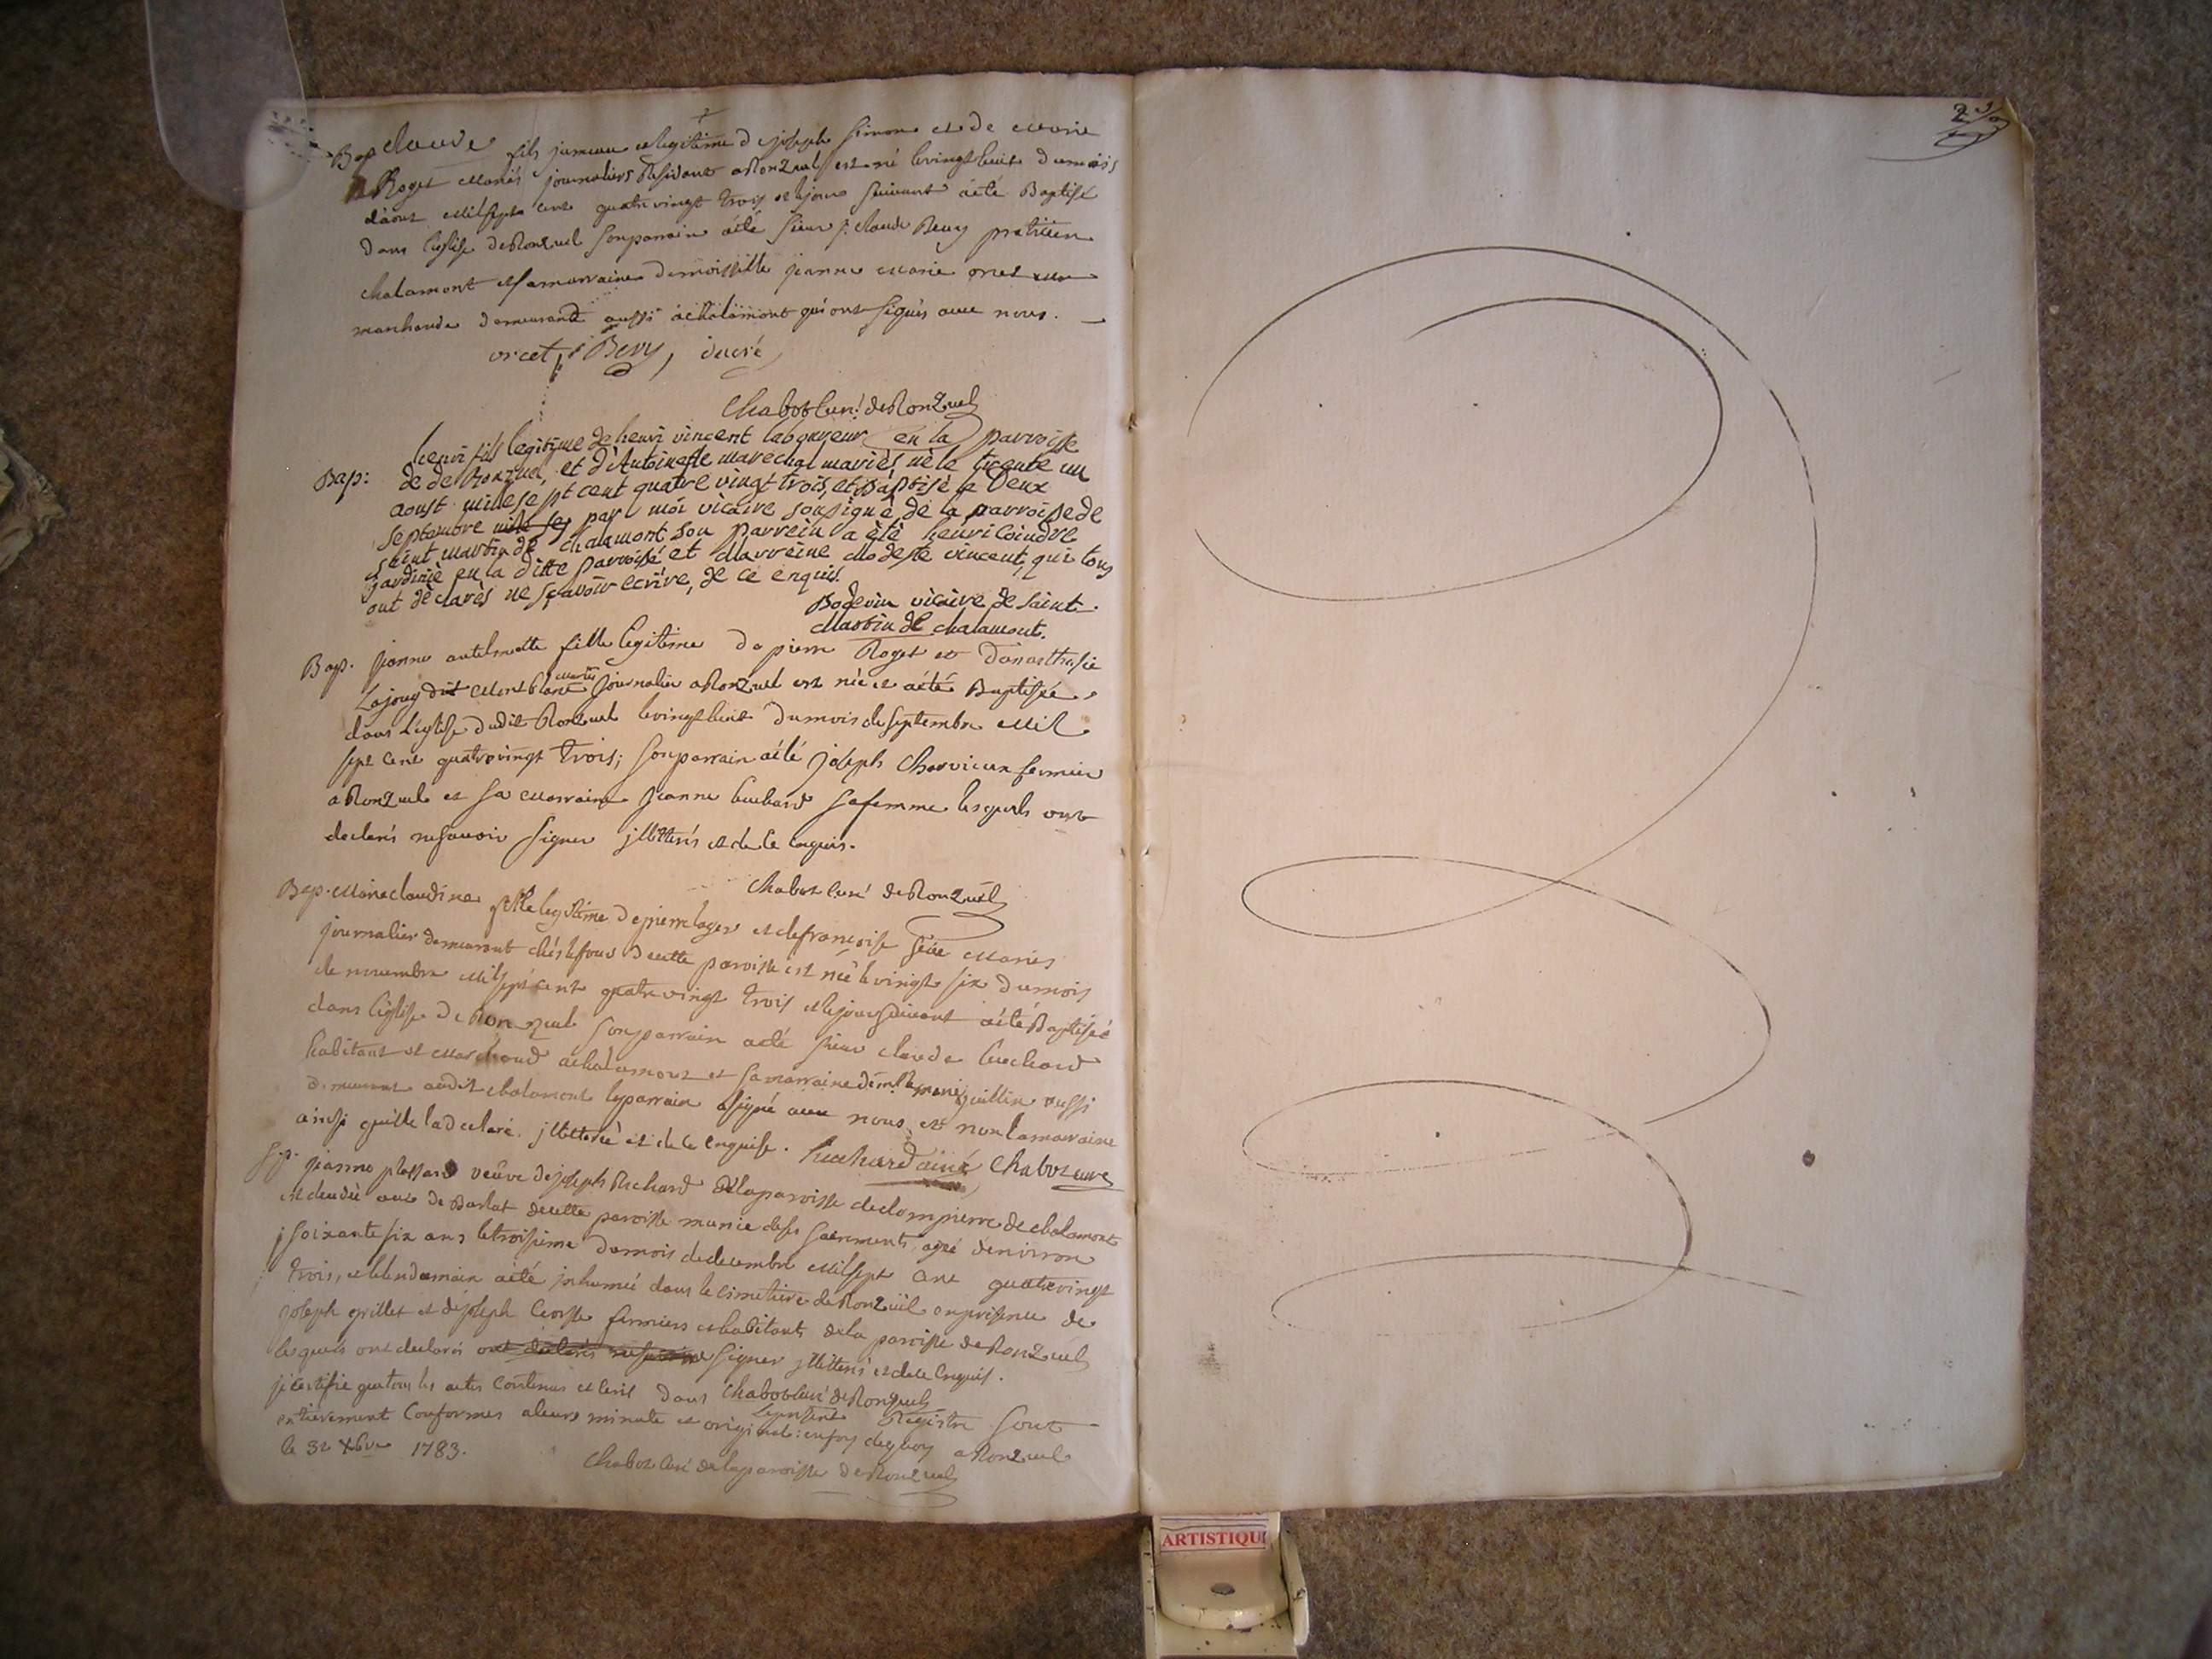 Bap claude fils jumeau et legitime de joseph simon et de marie
Roger mariés journaliers Residant a Ronzuel est né le vingt huit du mois
d'aout mil sept cent quatre vingt trois et le jour suivant a été Baptisé
dans l'eglise de Ronzuel son parrain a été sieur j: claude Bevy praticien
chalamont et sa marraine demoiselle jeanne marie orcet
marchande demeurante aussi a chalamont qui ont signés avec nous.
orcet, Bevy, ducré
Chabot curé de Ronzuel
henri fils legitime de henri vincent laboureur en la parroisse
Bap: de de Ronzuel, et d'Antoinette marechal mariès, nè le trente un
aoust mille sept cent quatre vingt trois, et baptisè le Deux
septembre mille sep par moi vicaire soussignè de la parroisse de
saint martin de chalamont son parrein a ètè henri Coindre
jardiniè en la ditte parroisse et marreine modeste vincent, qui tous
ont dèclarès ne sçavoir ecrire, de ce enquis.
Bodevin vicaire de saint
Martin de chalamont.
Bap. jeanne antelmette fille legitime de pierre Roger et d'anasthasie
Lajoug dit Montblanc mariés journalier a Ronzuel est née et a été Baptisée
dans l'eglise dudit Ronzuel le vingt huit du mois de septembre mil
sept cent quatrevingt trois; son parrain a été joseph Chorvieux fermier
a Ronzuel et sa marraine jeanne huchard sa femme lesquels ont
declarés ne savoir signer jllitterés et de ce enquis.
Chabot curé de Ronzuel
Bap. marie claudine fille legitime de pierre lager et de francoise mariés
journalier demeurant chés lefour de cette paroisse est née le vingt six du mois
de novembre mil sept cent quatre vingt trois et le jour suivant a été Baptisée
dans l'eglise de Ronzuel son parrain a été sieur claude huchard
habitant et marchand a chalamont et sa marraine demlle marie guillin aussi
demeurant audit chalamont le parrain a signé avec nous et non la marraine
ainsi qu'elle l'a declaré. jllitterée et de ce enquise. huchard ainé Chabot curé
Sep. jeanne plassard veuve de joseph Richard de la paroisse de dompierre de chalamont
est decedée au de Barlat de cette paroisse munie de ses sacrements, agée d'environ
soixante six ans le troisieme du mois de decembre mil sept cent quatrevingt
trois, et le lendemain a été inhumée dans le cimetiere de Ronzuel en presence de
joseph grillet et de joseph fermiers et habitants de la paroisse de Ronzuel
lesquels ont declarés ont declarés ne savoir signer jllitterés et de ce enquis.
Chabot curé de Ronzuel
je certifie que tous les actes contenus et ecris dans le present Registre sont
entierement conformes a leurs minute et original: en foy de quoy a Ronzuel
le 31 Xbre 1783.
Chabot curé de la paroisse de Ronzuel
ARTISTIQU